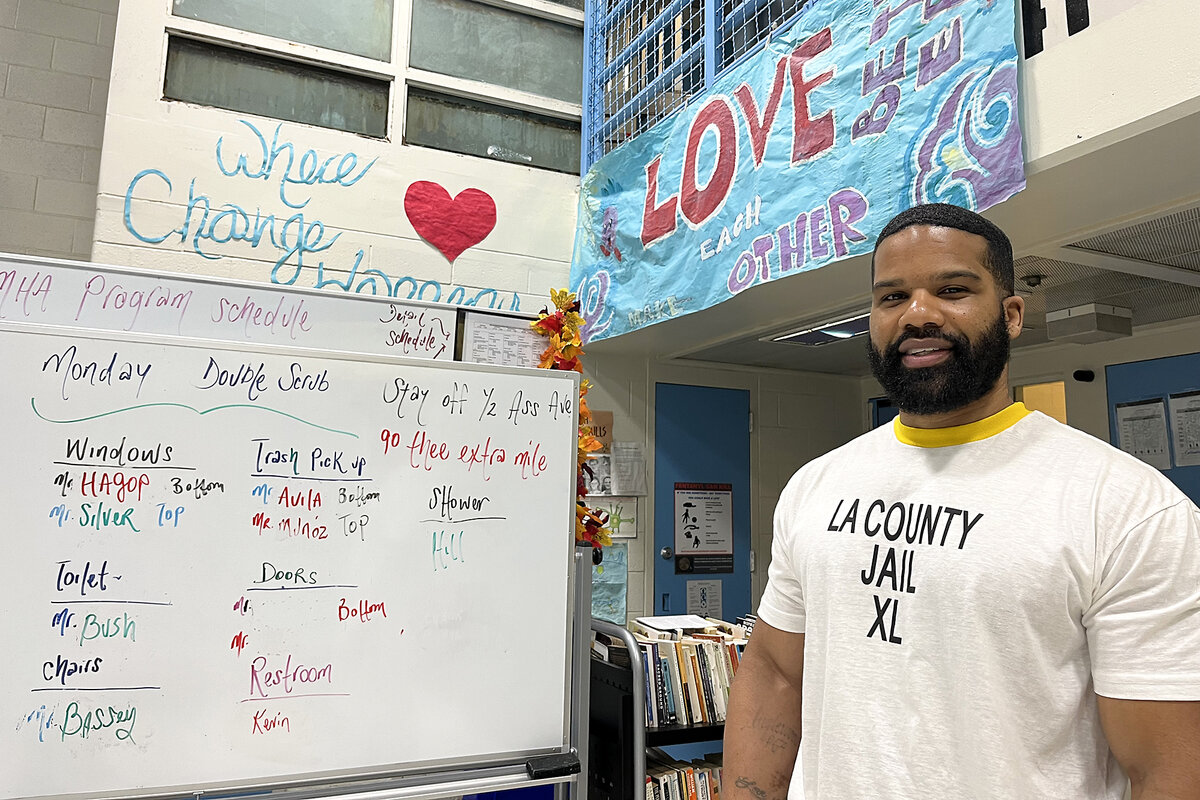 Where
Change
Happens
LOVE
EACH
OTHER
BE
MAKE
MHA Program schedule
Detail
schedule
Monday Double Scrub
Stay off 1/2 Ass Ave
go thee extra mile
Windows
Mr. HAGOP Bottom
Mr. Silver Top
Trash Pick up
Mr AVILA Bottom
Mr. Munoz Top
Shower
Hill
Toilet-
Mr. Bush
Doors
Mr. Bottom
Mr.
chairs
Mr. Bassey
Restroom
Kevin
LA COUNTY
JAIL
XL